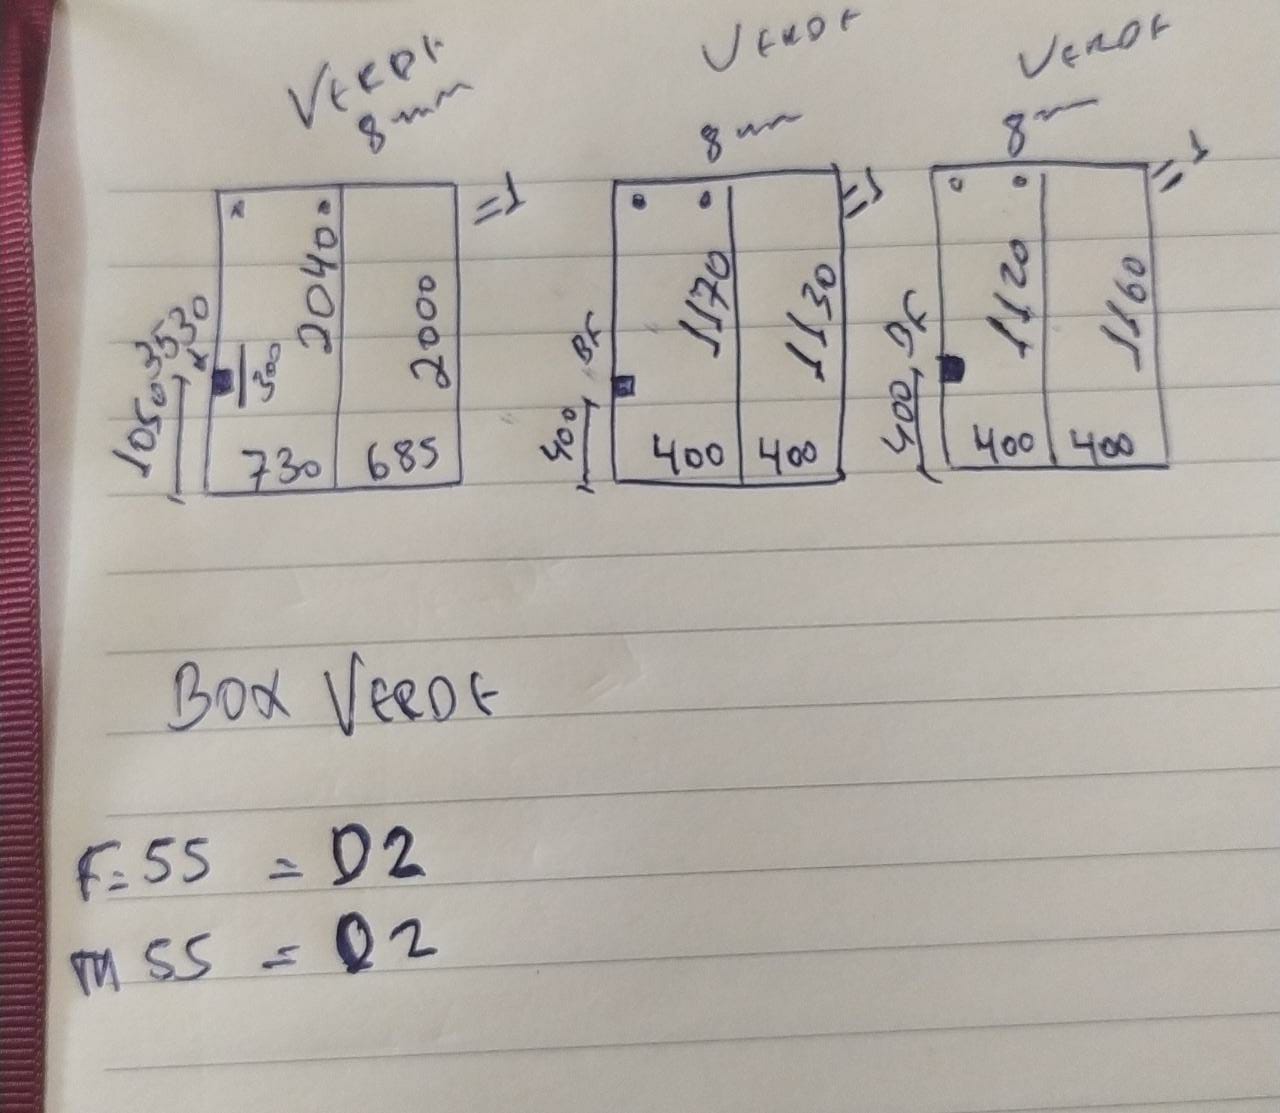 VERDE
8mm
=1
2040
2000
1050
3530
300
730
685
VERDE
8mm
=1
1170
1130
400
BF
400
400
VERDE
8mm
=1
1120
1160
400
BF
400
400
BOX VERDE
F=55 = 02
M 55 = 02